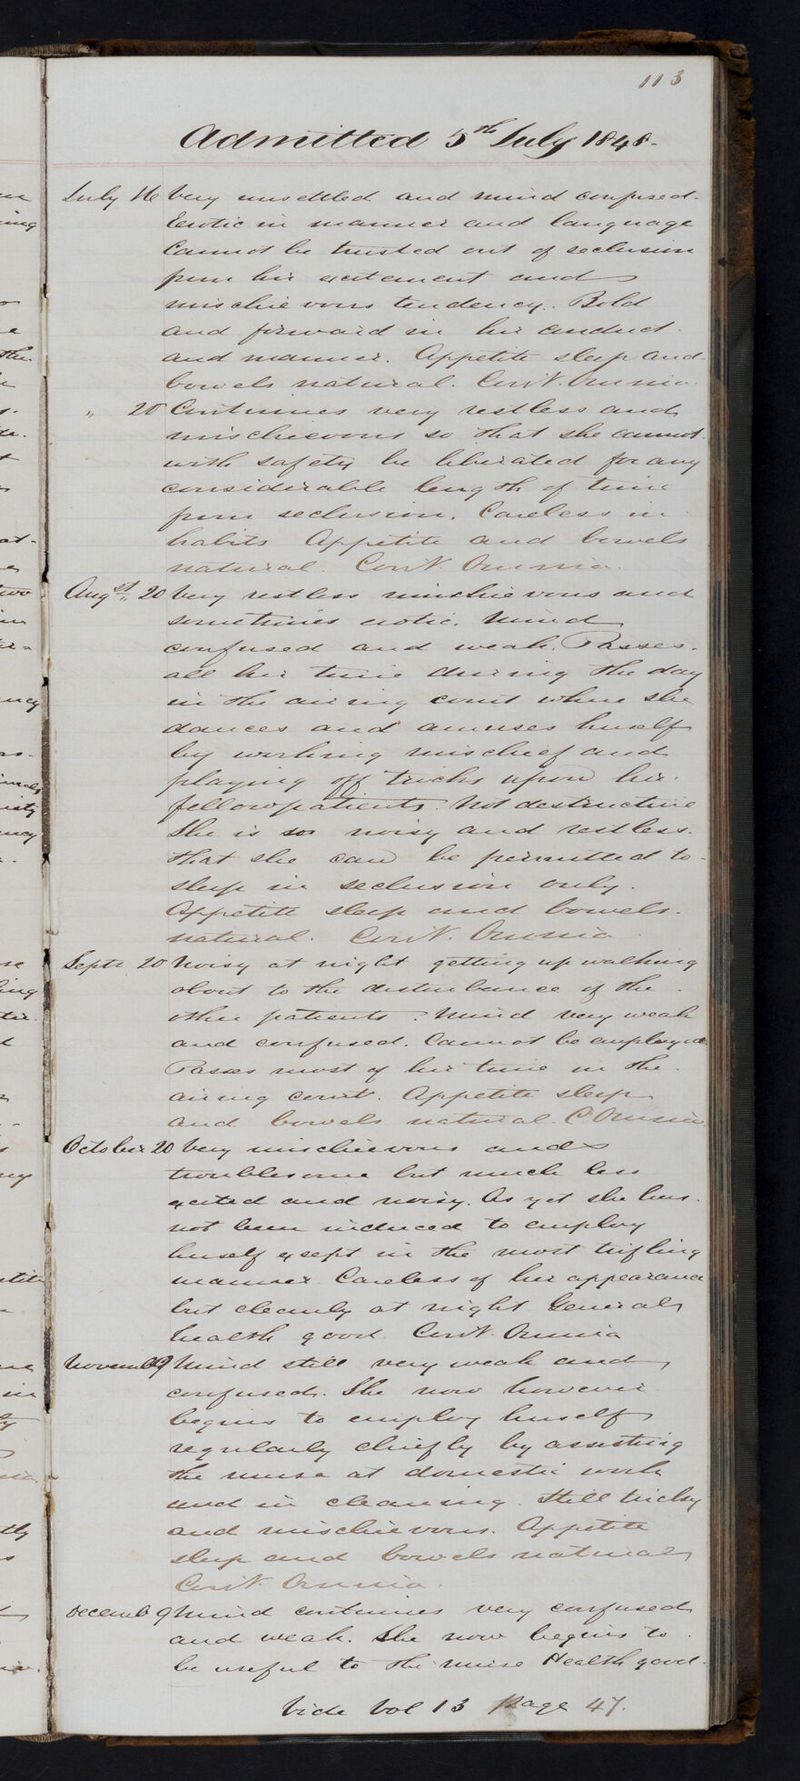 113
Admitted 5th July 1848.
July 16 Very unsettled and mind confused.
Erotic in manner and language
Cannot be trusted out of seclusion
from her excitement and
mischievous tendency. Bold
and forward in her conduct
and manner. Appetite sleep and
bowels natural. Cont. Omnia.
" 20 Continues very restless and
mischievous so that she cannot
with safety be liberated for any
considerable length of time
from seclusion. Careless in
habits Appetite and bowels
natural. Cont. Omnia.
Augst. 20 Very restless mischievous and
sometimes erotic. Mind
confused and weak. Passes
all her time during the day
in the airing court where she
dances and amuses herself
by working mischief and
playing off tricks upon her
fellowpatients. Not destructive
She is so noisy and restless
that she can be permitted to
sleep in seclusion only.
Appetite sleep and bowels
natural. Cont. Omnia
Septr 20 Noisy at night getting up walking
about to the disturbance of the
other patients. Mind very weak
and confused. Cannot be employed
Passes most of her time in the
airing court. Appetite sleep
and bowels natural. C Omnia
October 20 Very mischievous and
troublesome but much less
excited and noisy. As yet she has
not been induced to employ
herself except in the most trifling
manner. Careless of her appearance
but cleanly at night General
health good. Cont. Omnia
Mind still very weak and
confused. She now however
begins to employ herself
regularly chiefly by assisting
the nurse at domestic work
and in cleaning. Still tricky
and mischievous. Appetite
sleep and bowels natural
Cont. Omnia.
Decemb 9 Mind continues very confused
and weak. She now begins to
be useful to the nurse Health good.
Vide Vol 13 page 47.